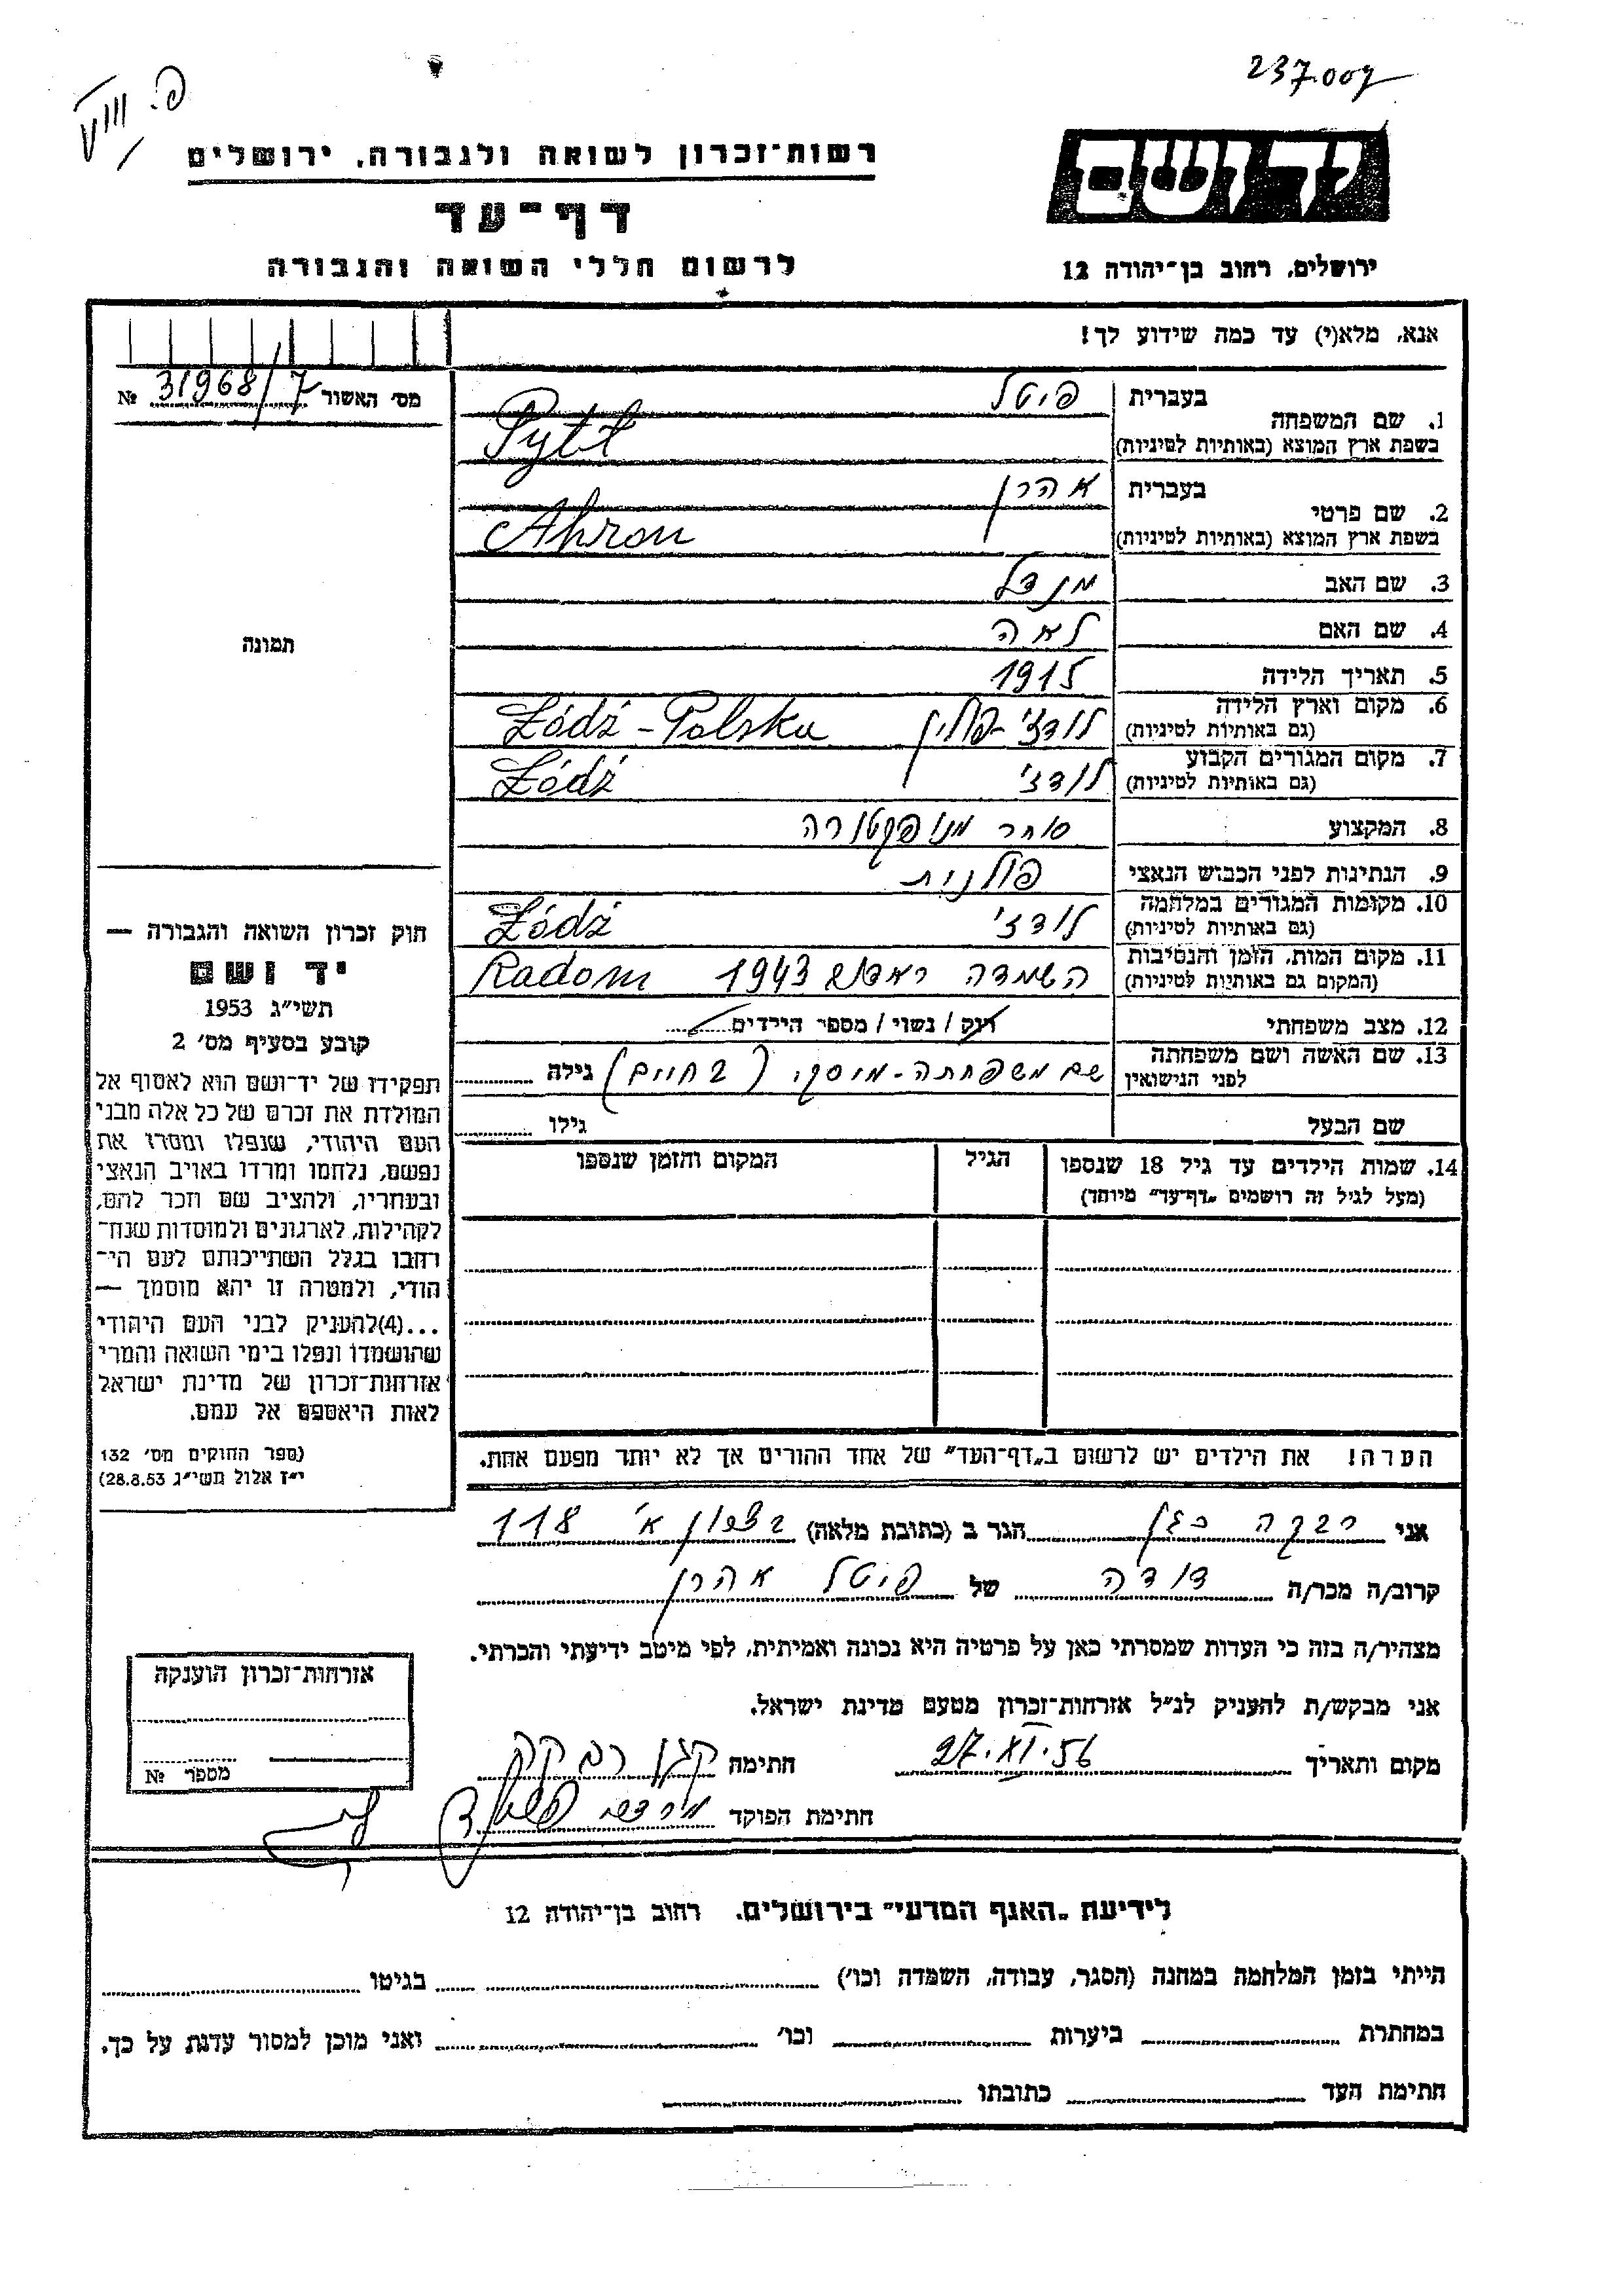 237.007
פ. VIII
יד ושם
רשות-זכרון לשואה ולגבורה, ירושלים
דף-עד
לרשום חללי השואה והגבורה
ירושלים, רחוב בן-יהודה 12
אנא, מלא(י) עד כמה שידוע לך!
מס׳ האשור 31968/7 №
1. שם המשפחה בעברית פיטל
בשפת ארץ המוצא (באותיות לטיניות) Pytl
2. שם פרטי בעברית אהרן
בשפת ארץ המוצא (באותיות לטיניות) Ahron
3. שם האב מנדל
4. שם האם לאה
5. תאריך הלידה 1915
6. מקום וארץ הלידה (גם באותיות לטיניות) לודז׳ - פולין Łódź - Polska
7. מקום המגורים הקבוע (גם באותיות לטיניות) לודז׳ Łódź
8. המקצוע סוחר מנופקטורה
9. הנתינות לפני הכבוש הנאצי פולנית
10. מקומות המגורים במלחמה (גם באותיות לטיניות) לודז׳ Łódź
11. מקום המות, הזמן והנסיבות (המקום גם באותיות לטיניות) השמדה 1943 Radom
12. מצב משפחתי רוק / נשוי / מספר הילדים
13. שם האשה ושם משפחתה לפני הנישואין שם משפחתה - (בחיים) גילה
שם הבעל גילו
14. שמות הילדים עד גיל 18 שנספו הגיל המקום והזמן שנספו
(מעל לגיל זה רושמים „דף-עד" מיוחד)
הערה! את הילדים יש לרשום ב„דף-העד" של אחד ההורים אך לא יותר מפעם אחת.
תמונה
חוק זכרון השואה והגבורה —
יד ושם
תשי״ג 1953
קובע בסעיף מס׳ 2
תפקידו של יד-ושם הוא לאסוף אל
המולדת את זכרם של כל אלה מבני
העם היהודי, שנפלו ומסרו את
נפשם, נלחמו ומרדו באויב הנאצי
ובעוזריו, ולהציב שם וזכר להם,
לקהילות, לארגונים ולמוסדות שנח-
רבו בגלל השתייכותם לעם הי-
הודי, ולמטרה זו יהא מוסמך —
...(4) להעניק לבני העם היהודי
שהושמדו ונפלו בימי השואה והמרי
אזרחות-זכרון של מדינת ישראל
לאות היאספם אל עמם.
(ספר החוקים מס׳ 132
י״ז אלול תשי״ג 28.8.53)
אני רבקה כגן הגר ב (כתובת מלאה) רצפון א׳ 118
קרוב/ה מכר/ה דודה של פיטל אהרן
מצהיר/ה בזה כי העדות שמסרתי כאן על פרטיה היא נכונה ואמיתית, לפי מיטב ידיעתי והכרתי.
אני מבקש/ת להעניק לנ״ל אזרחות-זכרון מטעם מדינת ישראל.
מקום ותאריך 27.XI.56 חתימה
חתימת הפוקד
אזרחות-זכרון הוענקה
מספר №
לידיעת „האגף המדעי" בירושלים. רחוב בן-יהודה 12
הייתי בזמן המלחמה במחנה (הסגר, עבודה, השמדה וכו׳) בגיטו
במחתרת ביערות וכו׳ ואני מוכן למסור עדות על כך.
חתימת העד כתובתו